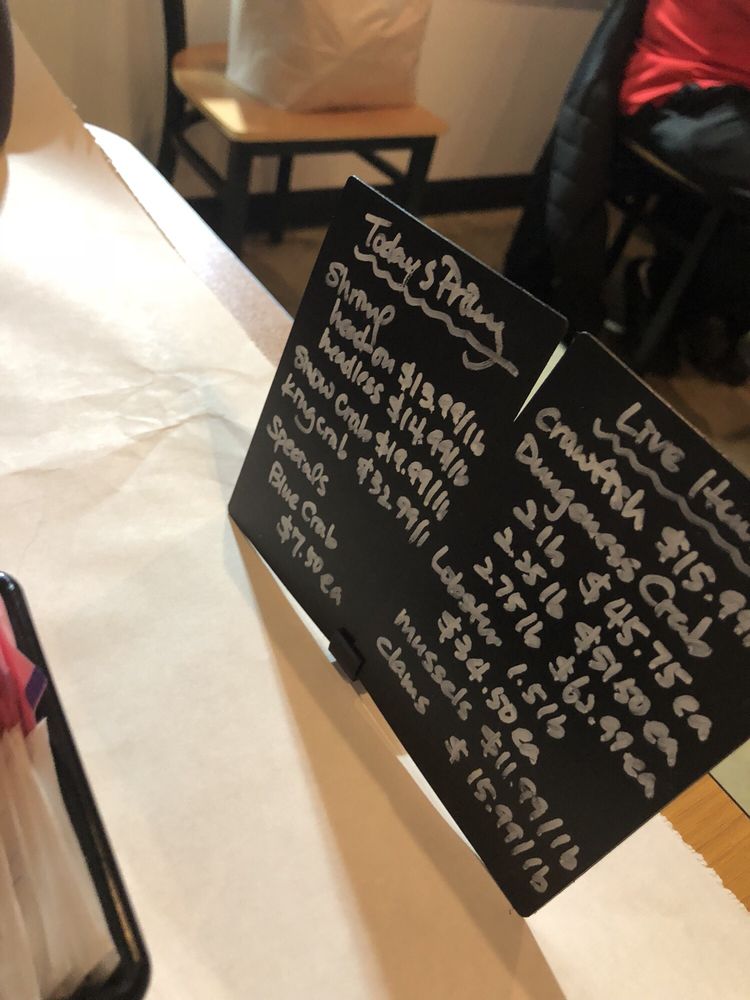 Today's Pricing
Shrimp
head on $13.99/lb
headless $14.99/lb
Snow Crab $19.99/lb
King crab $32.99/l
Specials
Blue Crab
$7.50 ea
Live
Crawfish $15.99
Dungeness Crab
2 lb $45.75 ea
2.25 lb $51.50 ea
2.75 lb ea
Lobster 1.5 lb
$34.50 ea
mussels $11.99/lb
clams $15.99/lb